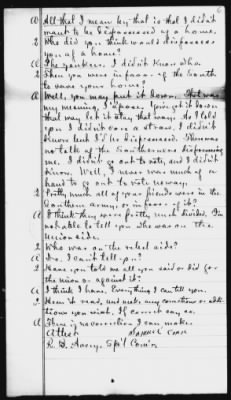 6
A All that I mean by that is that I didn't
want to be dispossessed of a home.
Q Who did you think would dispossess
you of a home?
A The yankees. I didn't know who.
Q Then you were in favor of the South
to save your home?
A Well, you may put it down. That was
my meaning, I suppose. You've got it down
that way let it stay that way. As I told
you I didn't care a straw. I didn't
know but I'd be dispossessed. There was
no talk of the Southerners dispossessing
me. I didn't go out to vote, and I didn't
know. Well, I never was much of a
hand to go out to vote nowhere.
Q Pretty much all of your friends were in the
Southern army, or in favor of it?
A I think they were pretty much divided. I'm
not able to tell you who was on the
Union side.
Q Who was on the rebel side?
A No, I can't tell you?
Q Have you told me all you said or did for
the union or against it?
A I think I have. Everything I can tell you.
Q Hear it read, and make any corrections or addi-
tions you wish. If correct say so.
A There is no correction I can make.
Attest
R. B. Avery, Sp'l Com'r.